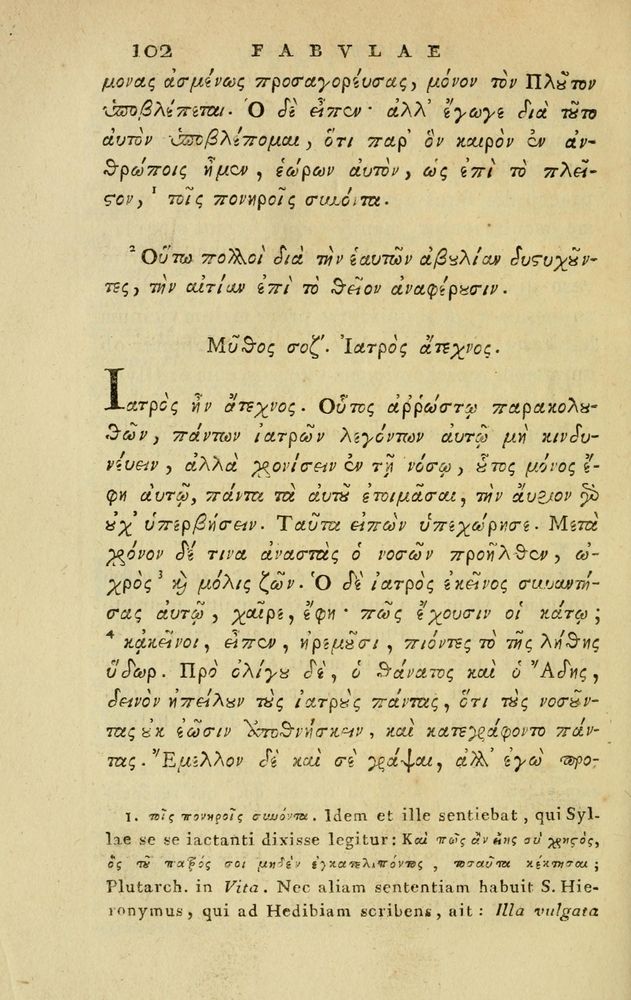 102 FABVLAE
μονας ἀσμένως προσαγορέυσας, μόνον τὸν Πλοῦτον
ὑποβλέπεται. Ὁ δὲ εἶπεν· ἀλλ᾽ ἔγωγε διὰ τοῦτο
αὐτὸν ὑποβλέπομαι, ὅτι παρ᾽ ὃν καιρὸν ἐν ἀν-
θρώποις ἦμεν, ἑώρων αὐτὸν, ὡς ἐπὶ τὸ πλεῖ-
στον, ¹ τοῖς πονηροῖς συνόντα.
² Οὕτω πολλοὶ διὰ τὴν ἑαυτῶν ἀβουλίαν δυστυχοῦν-
τες, τὴν αἰτίαν ἐπὶ τὸ θεῖον ἀναφέρουσιν.
Μῦθος σοζʹ. Ἰατρὸς ἄτεχνος.
Ἰατρὸς ἦν ἄτεχνος. Οὗτος ἀῤῥώστῳ παρακολου-
θῶν, πάντων ἰατρῶν λεγόντων αὐτῷ μὴ κινδυ-
νέυειν, ἀλλὰ χρονίσειν ἐν τῇ νόσῳ, οὗτος μόνος ἔ-
φη αὐτῷ, πάντα τὰ αὐτοῦ ἑτοιμάσαι, τὴν ἄυριον γὰρ
οὐχ᾽ ὑπερβήσειν. Ταῦτα εἰπὼν ὑπεχώρησε. Μετὰ
χρόνον δέ τινα ἀναστὰς ὁ νοσῶν προῆλθεν, ὠ-
χρὸς ³ καὶ μόλις ζῶν. Ὁ δὲ ἰατρὸς ἐκεῖνος συναντή-
σας αὐτῷ, χαῖρε, ἔφη· πῶς ἔχουσιν οἱ κάτω;
⁴ κἀκεῖνοι, εἶπεν, ἠρεμοῦσι, πιόντες τὸ τῆς λήθης
ὕδωρ. Πρὸ ὀλίγου δὲ, ὁ θάνατος καὶ ὁ Ἅδης,
δεινὸν ἠπείλουν τοὺς ἰατροὺς πάντας, ὅτι τοὺς νοσοῦν-
τας οὐκ ἐῶσιν ἀποθνήσκειν, καὶ κατεγράφοντο πάν-
τας. Ἔμελλον δὲ καὶ σὲ γράψαι, ἀλλ᾽ ἐγὼ προ-
1. τοῖς πονηροῖς συνόντα. Idem et ille sentiebat, qui Syl-
lae se se iactanti dixisse legitur: Καὶ πῶς ἂν εἴης σὺ χρηστὸς,
ὃς τοῦ πατρός σοι μηδὲν ἐγκαταλιπόντος, τοσαῦτα κέκτησαι;
Plutarch. in Vita. Nec aliam sententiam habuit S. Hie-
ronymus, qui ad Hedibiam scribens, ait: Illa vulgata